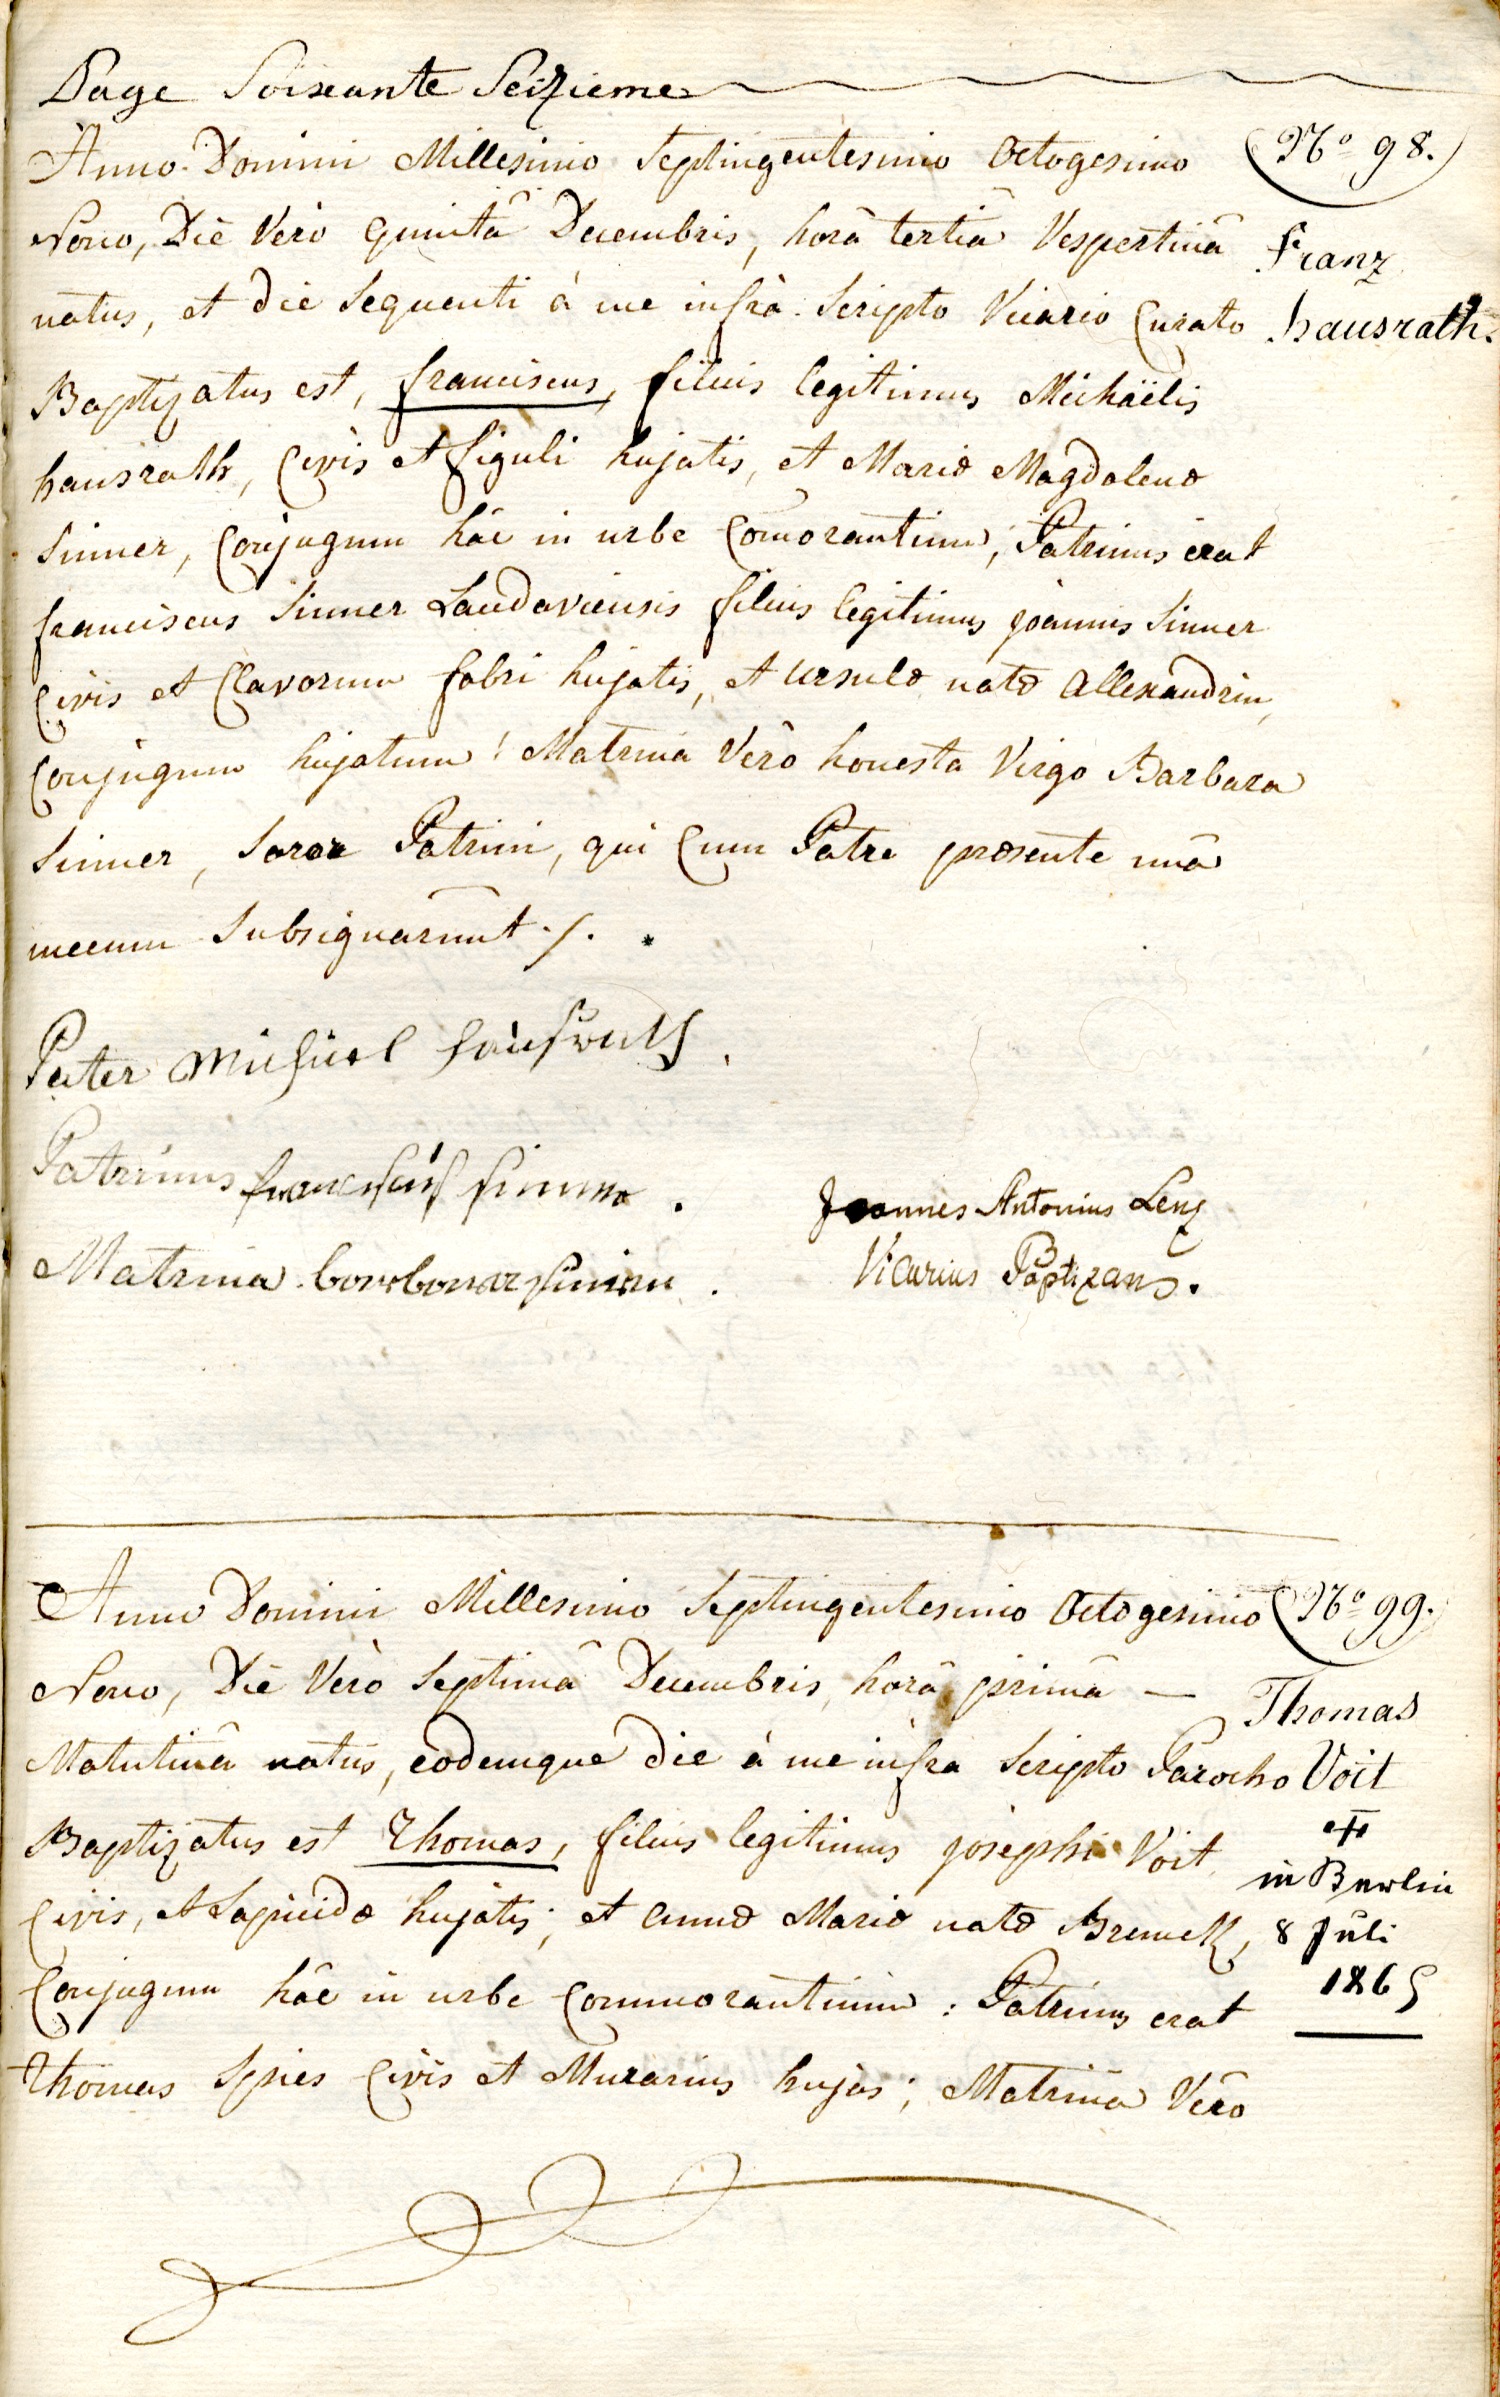 Page Soixante Seizieme
Anno Domini Millesimo Septingentesimo Octogesimo
Nono, Die Verò quintâ Decembris, horâ tertiâ Vespertinâ
natus, et die sequenti à me infrà scripto Vicario Curato
Baptizatus est, franciscus, filius legitimus Michäelis
hausrath, Civis et figuli hujatis, et Mariæ Magdalenæ
Sinner, Conjugum hâc in urbe Comorantium; Patrinus erat
franciscus Sinner Landaviensis filius legitimus joannis Sinner
Civis et Clavorum fabri hujatis, et Ursulæ natæ Allexandrin,
Conjugum hujatum! Matrina Verò honesta Virgo Barbara
Sinner, Soror Patrini, qui Cum Patre præsente unâ
mecum Subsignarunt ./.
No 98.
Franz
hausrath.
Pater Michael hausrath.
Patrinus franciscus sinner.
Matrina barbara sinnerin.
Joannes Antonius Lenz
Vicarius Baptizans.
Anno Domini Millesimo Septingentesimo Octogesimo
Nono, Die Verò Septimâ Decembris, horâ primâ —
Matutinâ natus, eodemque die à me infra scripto Parocho
Baptizatus est Thomas, filius legitimus josephi Voit
Civis, et Lapicidæ hujatis; et annæ Mariæ natæ
Conjugum hâc in urbe Commorantium: Patrinus erat
Thomas Spies Civis et Murarius hujas; Matrina Verò
No 99.
Thomas
Voit
in Berlin
8 Juli
1865